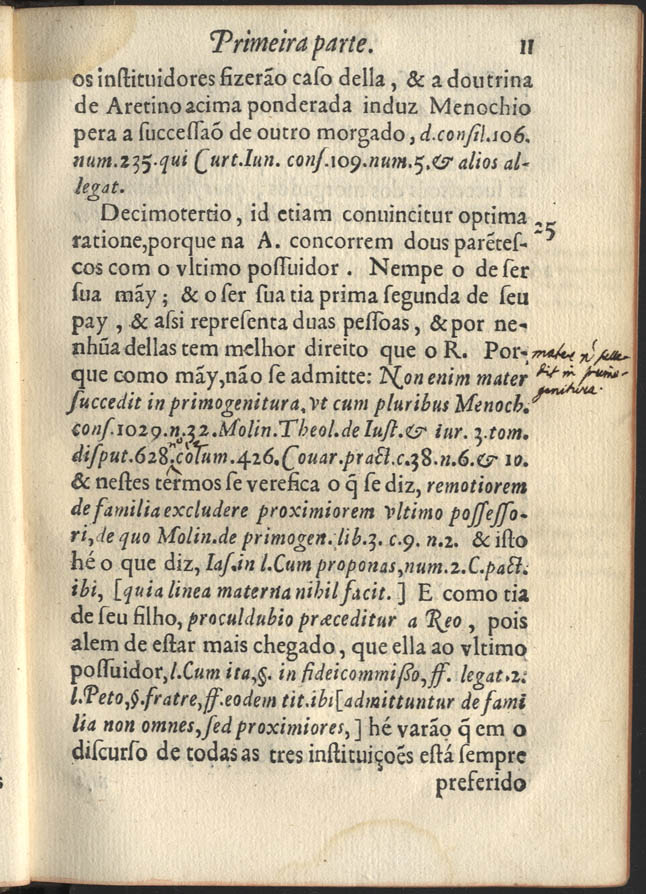 Primeira parte. 11
os inſtituidores fizerão caſo della, & a doutrina
de Aretino acima ponderada induz Menochio
pera a ſucceſſaõ de outro morgado, d.conſil.106.
num.235.qui Curt.Iun. conſ.109.num.5.& alios al-
legat.
Decimotertio, id etiam conuincitur optima
ratione,porque na A. concorrem dous parẽteſ- 25
cos com o vltimo poſſuidor. Nempe o de ſer
ſua mãy; & o ſer ſua tia prima ſegunda de ſeu
pay, & aſsi repreſenta duas peſſoas, & por ne-
nhũa dellas tem melhor direito que o R. Por-
que como mãy,não ſe admitte: Non enim mater
ſuccedit in primogenitura, vt cum pluribus Menoch.
conſ.1029.n.32.Molin.Theol.de Iuſt.& iur. 3.tom.
diſput.628.colum.426.Couar.pract.c.38.n.6.& 10.
& neſtes termos ſe verefica o q̃ ſe diz, remotiorem
de familia excludere proximiorem vltimo poſſeſſo-
ri,de quo Molin.de primogen.lib.3. c.9. n.2. & iſto
hé o que diz, Iaſ.in l.Cum proponas,num.2.C.pact.
ibi, [quia linea materna nihil facit.] E como tia
de ſeu filho, proculdubio præceditur a Reo, pois
alem de eſtar mais chegado, que ella ao vltimo
poſſuidor,l.Cum ita,§. in fideicommiſſo,ff. legat.2.
l.Peto,§.fratre,ff.eodem tit.ibi[admittuntur de fami
lia non omnes,ſed proximiores,] hé varão q̃ em o
diſcurſo de todas as tres inſtituiçoẽs eſtá ſempre
preferido
mater
dit in primo-
genitura.